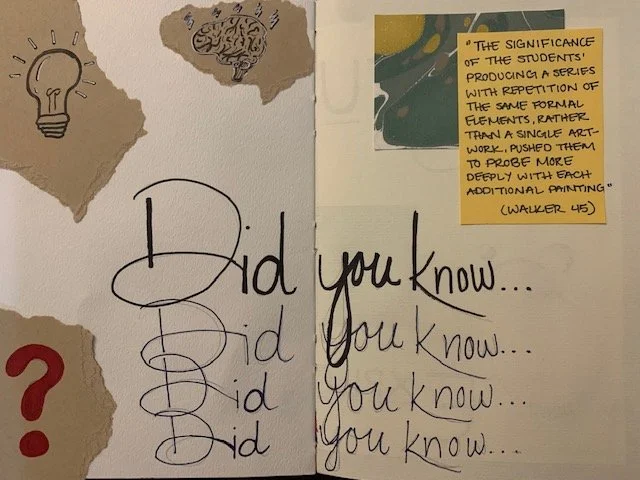 "THE SIGNIFICANCE
OF THE STUDENTS'
PRODUCING A SERIES
WITH REPETITION OF
THE SAME FORMAL
ELEMENTS, RATHER
THAN A SINGLE ART-
WORK, PUSHED THEM
TO PROBE MORE
DEEPLY WITH EACH
ADDITIONAL PAINTING"
(WALKER 45)
Did you know...
Did you know...
Did you know...
Did you know...
?